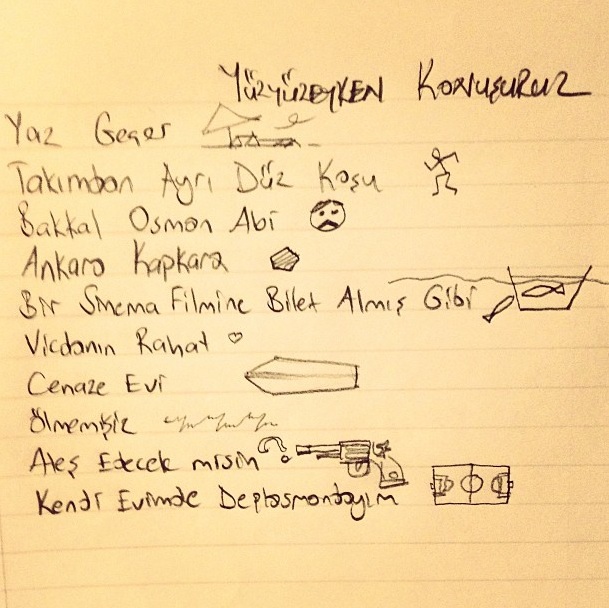 Yüzyüzeyken Konuşuruz
Yaz Geçer
Takımdan Ayrı Düz Koşu
Bakkal Osman Abi
Ankara Kapkara
Bir Sinema Filmine Bilet Almış Gibi
Vicdanın Rahat
Cenaze Evi
Ölmemişiz
Ateş Edecek misin?
Kendi Evimde Deplasmandayım